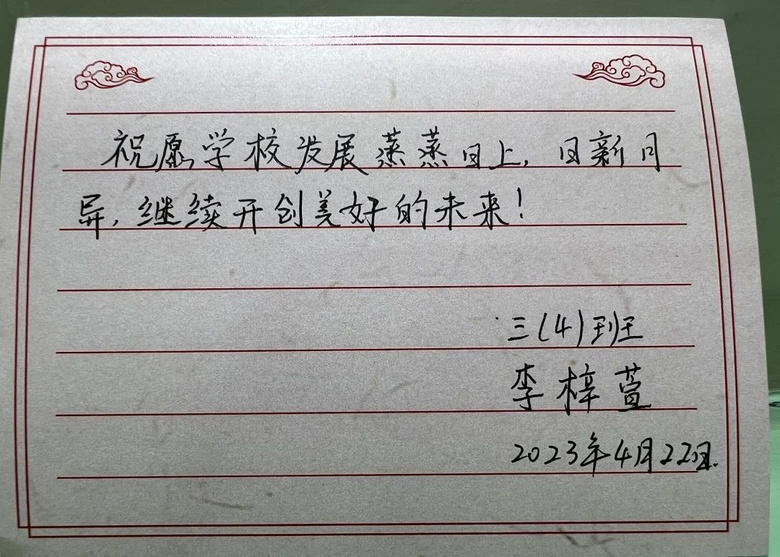 祝愿学校发展蒸蒸日上，日新月
异，继续开创美好的未来！
三(4)班
李梓萱
2023年4月22日.